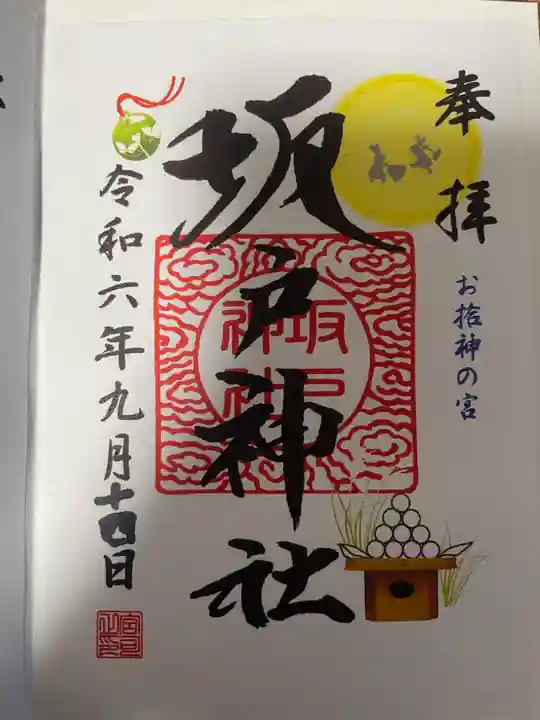 奉拝
お捨神の宮
坂戸神社
坂戸
神社
令和六年九月十四日